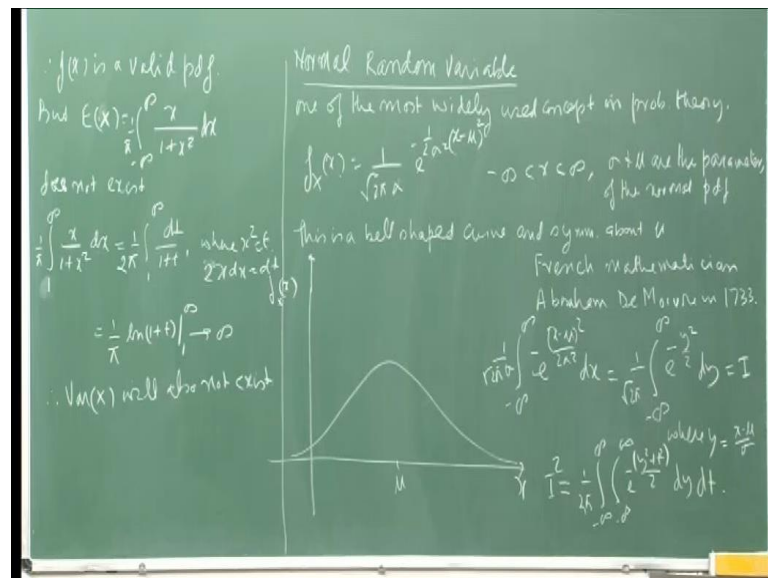 ∴ f(x) is a valid pdf.
But E(X) = 1/π ∫_{-∞}^{∞} x/(1+x²) dx
does not exist
1/π ∫_1^∞ x/(1+x²) dx = 1/2π ∫_1^∞ dt/(1+t), where x² = t,
2x dx = dt
= 1/π ln(1+t)|_1^∞ → ∞
∴ Var(X) will also not exist
Normal Random Variable
one of the most widely used concept in prob. theory.
f_X(x) = 1/(√2π σ) e^{-1/2σ² (x-μ)²} -∞ < x < ∞, σ & μ are the parameters
of the normal pdf
This is a bell shaped curve and symm. about μ
French mathematician
Abraham De Moivre in 1733.
f_X(x)
1/(√2π σ) ∫_{-∞}^{∞} e^{-(x-μ)²/2σ²} dx = 1/√2π ∫_{-∞}^{∞} e^{-y²/2} dy = I
where y = (x-μ)/σ
I² = 1/2π ∫_{-∞}^{∞} ∫_{-∞}^{∞} e^{-(y²+t²)/2} dy dt.
μ
x